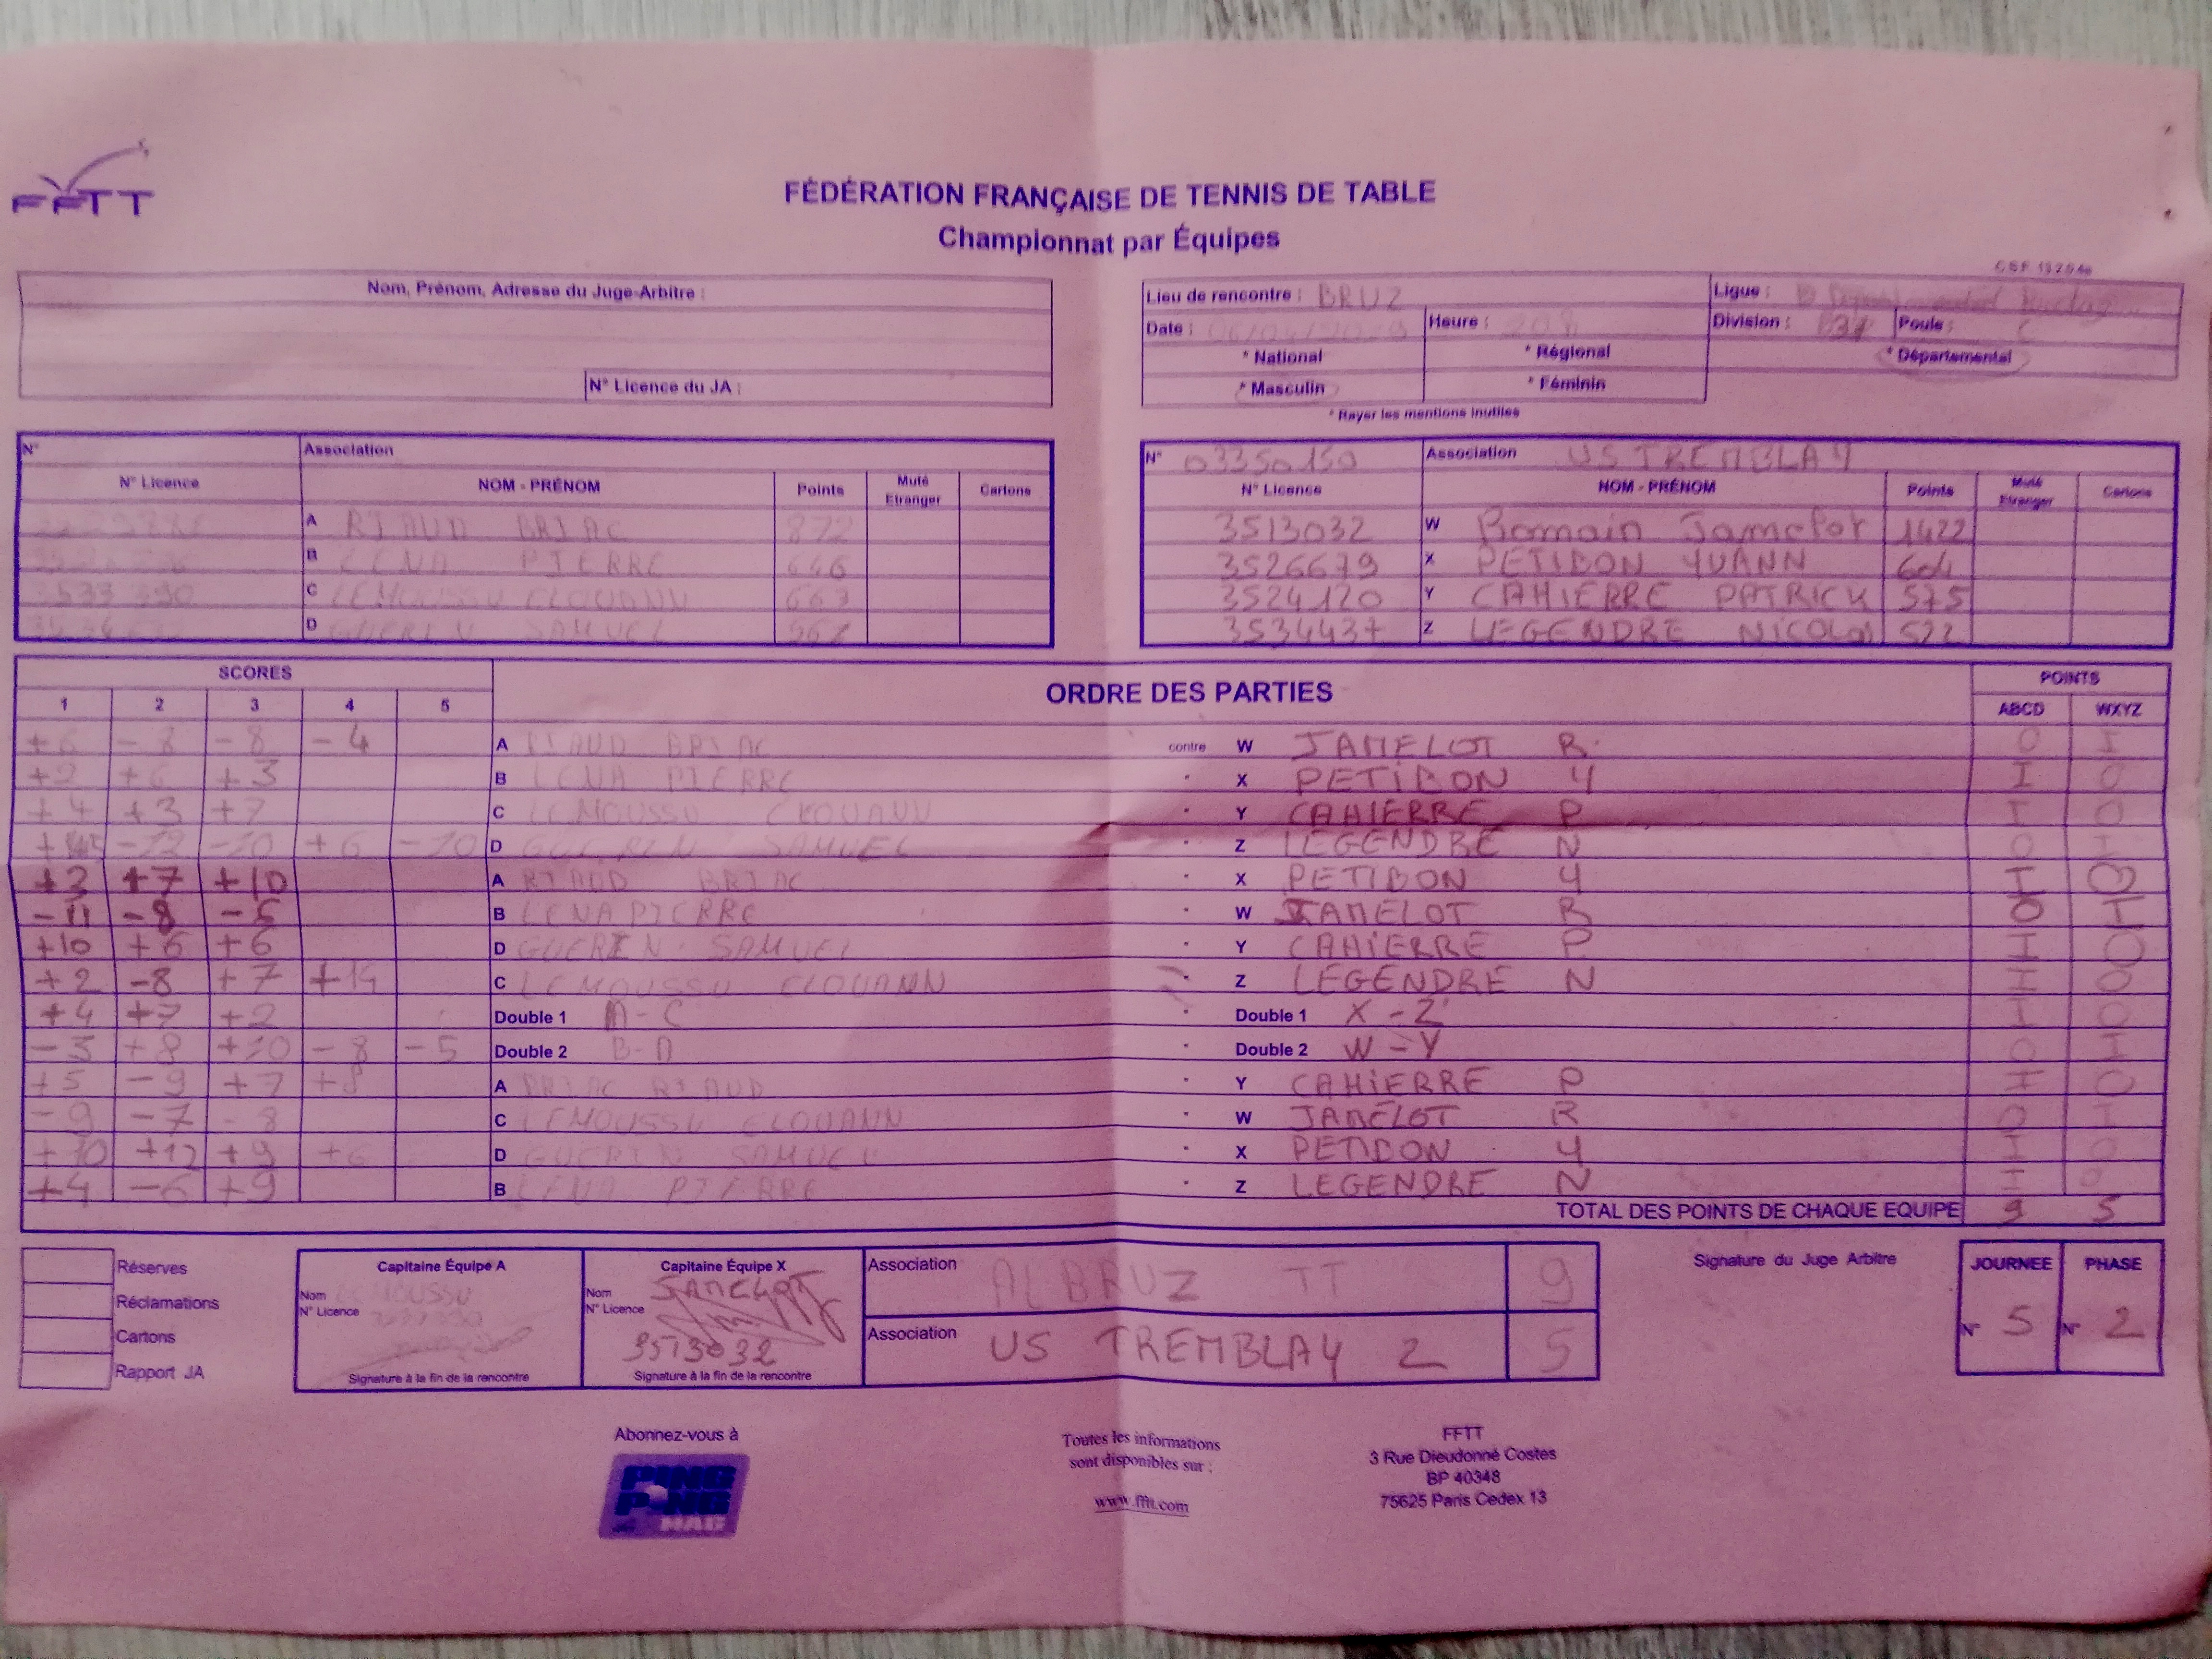 FFTT
FÉDÉRATION FRANÇAISE DE TENNIS DE TABLE
Championnat par Équipes
Nom, Prénom, Adresse du Juge-Arbitre :
N° Licence du JA :
Lieu de rencontre : BRUZ Ligue :
Date : Heure : Division : Poule : C
* National * Régional * Départemental
* Masculin * Féminin
* Rayer les mentions inutiles
N° Association
N° Licence NOM - PRÉNOM Points Muté Etranger Cartons
A RIAUD BRIAC 872
B LENA PIERRE 646
C LEMOUSSU ELOUANN 663
D GUERIN SAMUEL
N° 03350150 Association US TREMBLAY
N° Licence NOM - PRÉNOM Points Muté Etranger Cartons
3513032 W Romain Jamelot 1422
3526679 X PETIBON YUANN 604
3524120 Y CAHIERRE PATRICK 575
3534437 Z LEGENDRE NICOLAS 522
SCORES ORDRE DES PARTIES POINTS
1 2 3 4 5 ABCD WXYZ
+6 -8 -8 -4 A RIAUD BRIAC contre W JAMELOT R. 0 I
+2 +6 +3 B LENA PIERRE " X PETIBON Y I 0
+4 +3 +7 C LEMOUSSU ELOUANN " Y CAHIERRE P I 0
+6 -10 D GUERIN SAMUEL " Z LEGENDRE N 0 I
+3 +7 +10 A RIAUD BRIAC " X PETIBON Y I 0
-8 B LENA PIERRE " W JAMELOT R 0 I
+10 +6 +6 D GUERIN SAMUEL " Y CAHIERRE P I 0
+2 -8 +7 C LEMOUSSU ELOUANN " Z LEGENDRE N I 0
+4 +7 +2 Double 1 A-C " Double 1 X-Z I 0
-3 +8 +10 -8 -5 Double 2 B-D " Double 2 W-Y 0 I
+5 -9 +7 A BRIAC RIAUD " Y CAHIERRE P I 0
-9 -7 -8 C LEMOUSSU ELOUANN " W JAMELOT R 0 I
+10 +12 +9 +6 D GUERIN SAMUEL " X PETIBON Y I 0
+4 -6 +9 B LENA PIERRE " Z LEGENDRE N I 0
TOTAL DES POINTS DE CHAQUE EQUIPE 9 5
Réserves
Réclamations
Cartons
Rapport JA
Capitaine Équipe A
Nom LEMOUSSU
N° Licence
Signature à la fin de la rencontre
Capitaine Équipe X
Nom JAMELOT
N° Licence
3513032
Signature à la fin de la rencontre
Association AL BRUZ TT 9
Association US TREMBLAY 2 5
Signature du Juge Arbitre
JOURNEE PHASE
N° 5 N° 2
Abonnez-vous à
PING PONG MAG
Toutes les informations
sont disponibles sur :
www.fftt.com
FFTT
3 Rue Dieudonné Costes
BP 40348
75625 Paris Cedex 13